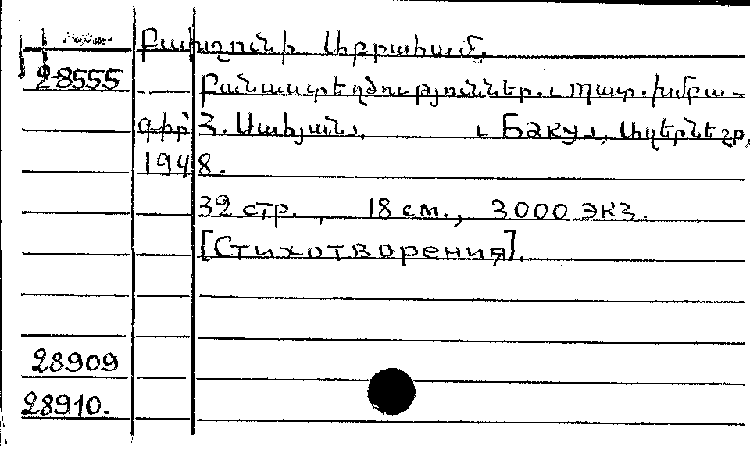 Բախշունի Աբրահամ.
28555
Բանաստեղծություններ. Պատ. խմբա-
գիր՝ Հ. Սահյան. Բաքու, Ազերնեշր,
1948.
32 стр., 18 см., 3000 экз.
[Стихотворения].
28909
28910.